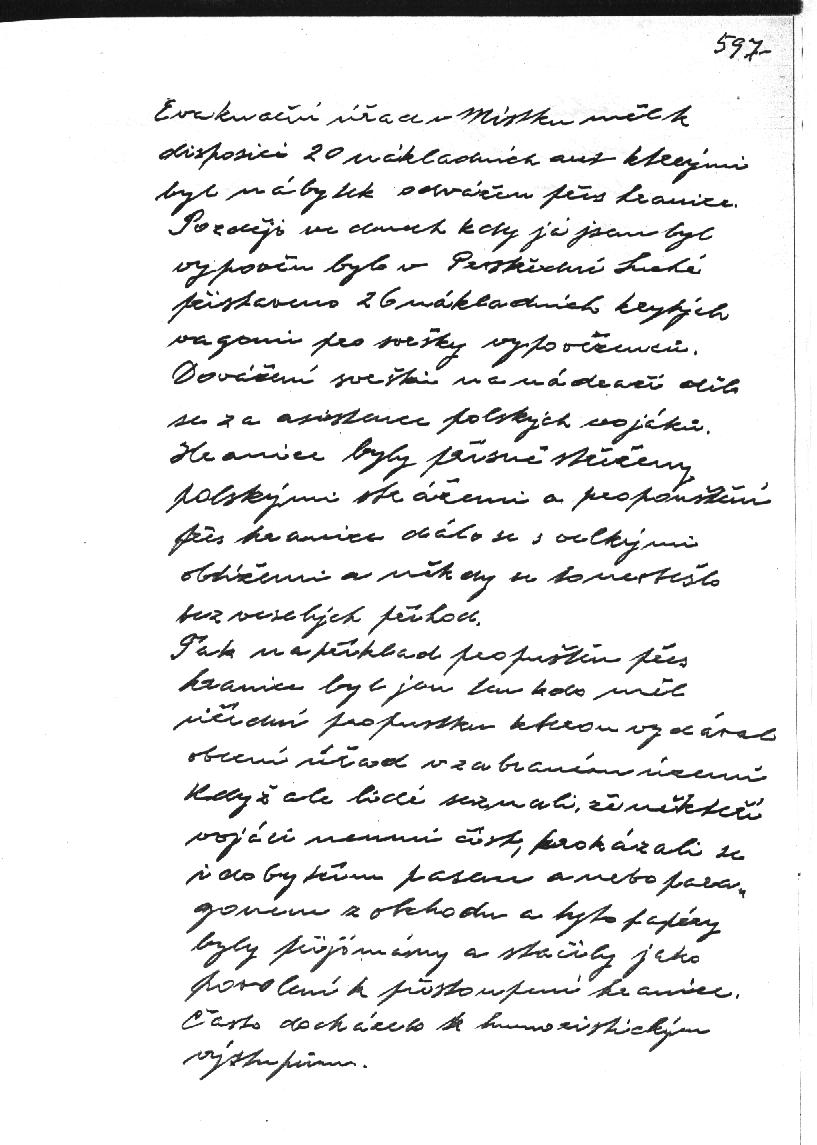 597
Evakuační úřad v Místku měl k
disposici 20 nákladních aut kterými
byl nábytek odvážen přes hranice.
Později ve dnech kdy já jsem byl
vypověn bylo v Prostřední Suché
přistaveno 26 nákladních krytých
vagonů pro svršky vypovězenců.
Dovážení svršků na nádraží dělo
se za asistence polských vojáků.
Hranice byly přísně střeženy
polskými strážemi a propouštění
přes hranice dálo se s velkými
obtížemi a někdy se to neobešlo
bez veselých příhod.
Tak na příklad propuštěn přes
hranice byl jen ten kdo měl
úřední propustku kterou vydával
obecní úřad v zabraném území
Když ale lidé seznali, že někteří
vojáci neumí číst, prokázali se
i dobytčím pasem anebo para„
gonem z obchodu a tyto papíry
byly přijímány a stačily jako
povolení k přestoupení hranice.
Často docházelo k humoristickým
výstupům.